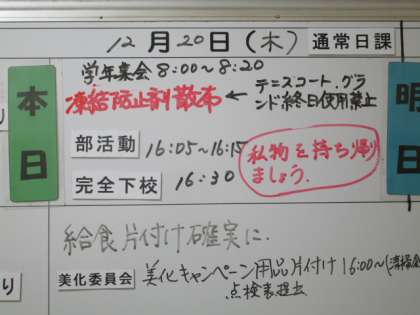 12月20日(木) 通常日課
本日
明日
学年集会 8:00〜8:20
凍結防止剤散布 ← テニスコート、グラ
ンド終日使用禁止
部活動 16:05〜16:15
完全下校 16:30
私物を持ち帰り
ましょう.
給食片付け確実に.
美化委員会 美化キャンペーン用品片付け 16:00〜
点検表提出
り